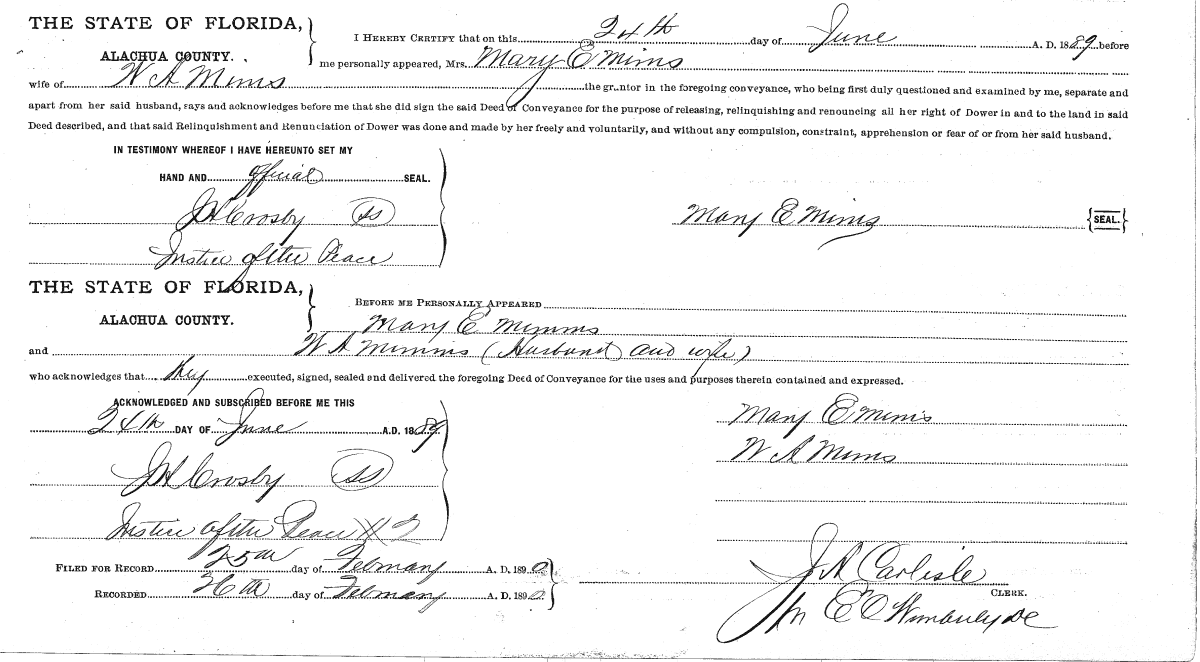 THE STATE OF FLORIDA,
ALACHUA COUNTY.
I HEREBY CERTIFY that on this 24th day of June A. D. 1889 before
me personally appeared, Mrs. Mary E Mims
wife of W A Mims the grantor in the foregoing conveyance, who being first duly questioned and examined by me, separate and
apart from her said husband, says and acknowledges before me that she did sign the said Deed of Conveyance for the purpose of releasing, relinquishing and renouncing all her right of Dower in and to the land in said
Deed described, and that said Relinquishment and Renunciation of Dower was done and made by her freely and voluntarily, and without any compulsion, constraint, apprehension or fear of or from her said husband.
IN TESTIMONY WHEREOF I HAVE HEREUNTO SET MY
HAND AND official SEAL.
J H Crosby
Mary E Mims {SEAL.}
Justice of the Peace
THE STATE OF FLORIDA,
ALACHUA COUNTY.
BEFORE ME PERSONALLY APPEARED
Mary E Mimms
and W A Mimms (Husband and wife)
who acknowledges that they executed, signed, sealed and delivered the foregoing Deed of Conveyance for the uses and purposes therein contained and expressed.
ACKNOWLEDGED AND SUBSCRIBED BEFORE ME THIS
24th DAY OF June A.D. 1889
Mary E Mims
W A Mims
J H Crosby
Justice of the Peace
FILED FOR RECORD 25th day of February A. D. 1890
RECORDED 26th day of February A. D. 1890
J A Carlisle
CLERK.
E C Wimberly DC